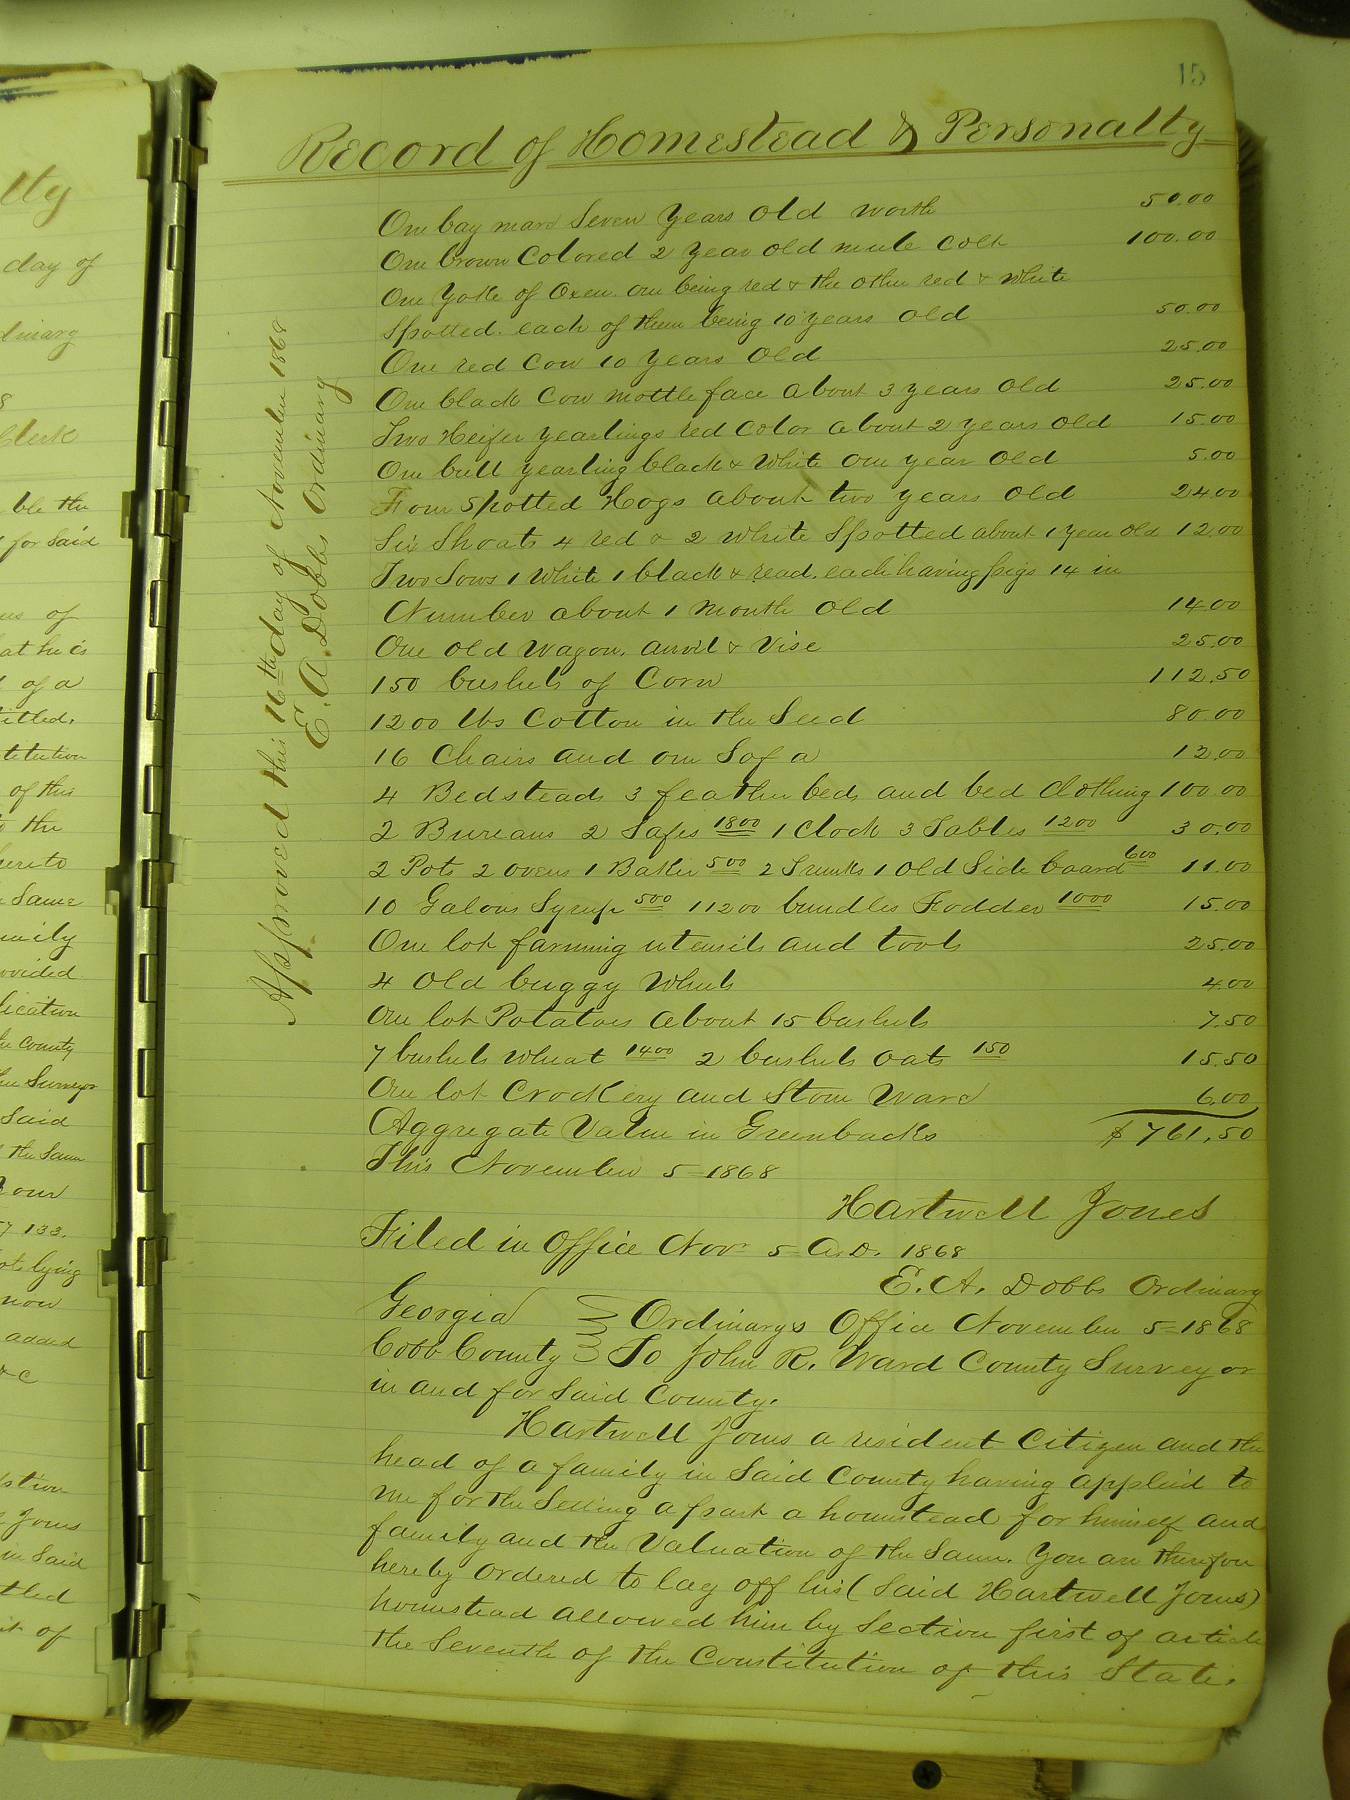 15
Record of Homestead & Personalty
One bay mare Seven Years old worth 50.00
One brown Colored 2 year old mule colt 100.00
One Yoke of Oxen one being red & the other red & White
Spotted. each of them being 10 years old 50.00
One red Cow 10 Years old 25.00
One black Cow mottle face about 3 years old 25.00
Two Heifer yearlings red color about 2 years old 15.00
One bull yearling black & White one year old 5.00
Four Spotted Hogs about two years old 24.00
Six Shoats 4 red & 2 White Spotted about 1 year old 12.00
Two Sows 1 White 1 black & read. each having pigs 14 in
Number about 1 month old 14.00
One old wagon. anvil & Vise 25.00
150 bushels of Corn 112.50
1200 lbs Cotton in the Seed 80.00
16 Chairs and one Sofa 12.00
4 Bedsteads 3 feather beds and bed Clothing 100.00
2 Bureaus 2 Safes 18 00 1 Clock 3 Tables 12 00 30.00
2 Pots 2 ovens 1 Baker 5 00 2 Trunks 1 old Side board 6 00 11.00
10 Galons Syrup 5 00 11200 bundles Fodder 10 00 15.00
One lot farming utensils and tools 25.00
4 Old buggy Wheels 4.00
One lot Potatoes about 15 bushels 7.50
7 bushels wheat 14 00 2 bushels oats 1 50 15.50
One lot Crockery and Stone Ware 6.00
Aggregate Value in Greenbacks $761.50
This November 5 1868
Hartwell Jones
Filed in Office Nov 5 A.D. 1868
E. A. Dobbs Ordinary
Georgia Ordinarys Office November 5 1868
Cobb County To John R. Ward County Surveyor
in and for Said County.
Hartwell Jones a resident Citizen and the
head of a family in Said County having applied to
me for the Setting apart a homestead for himself and
family and the Valuation of the Same. You are therefore
hereby ordered to lay off his (Said Hartwell Jones)
homestead allowed him by Section first of article
the Seventh of the Constitution of this State.
Approved this 16th day of November 1868
E. A. Dobbs Ordinary
lty
day of
dinary
8
Clerk
ble the
for said
us of
at he is
of a
titled.
stitution
of this
to the
hereto
Same
mily
ovided
lication
the county
the Surveyor
Said
the Same
our
133.
lying
now
added
&c
Jones
in Said
tled
it of